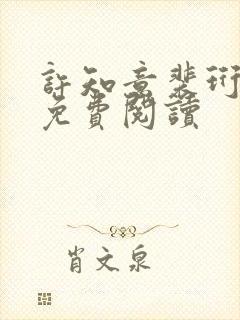 許知意裴珩
免費閱讀
肖文泉